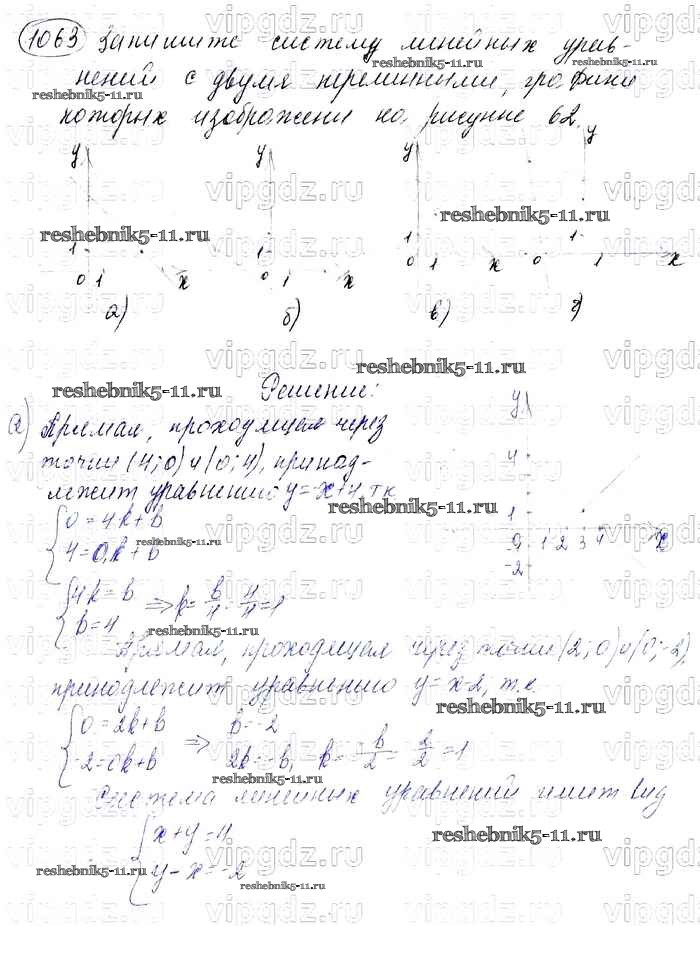 1063 Запишите систему линейных урав-
нений с двумя переменными, графики
которых изображены на рисунке 62.
y y y y
1 1 1 1
0 1 x 0 1 x 0 1 x 0 1 x
а) б) в) г)
Решение:
а) Прямая, проходящая через
точки (4;0) и (0;4), принад-
лежит уравнению y=-x+4, т.к.
{0=4k+b
4=0,k+b
{4k=b
b=4 => k= b/4 · 4/4 =1
Прямая, проходящая через точки (2;0) и (0;-2),
принадлежит уравнению y=x-2, т.к.
{0=2k+b
-2=0k+b => b=-2
2k=-b, k=-b/2 2/2=1
Система линейных уравнений имеет вид
{x+y=4,
y-x=-2
y
4
1
0 1 2 3 4 x
-2
reshebnik5-11.ru
vipgdz.ru